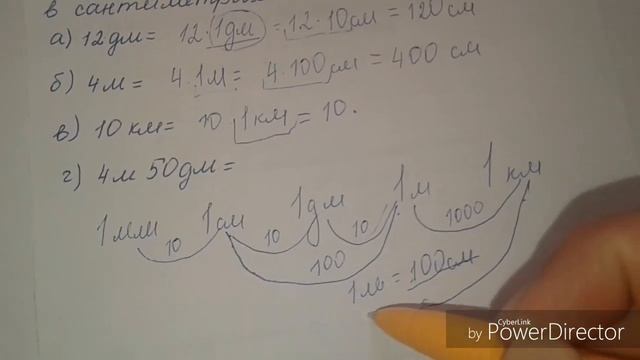 в сантиметрах
а) 12дм = 12 · 1дм = 12 · 10см = 120см
б) 4м = 4 · 1м = 4 · 100см = 400 см
в) 10 км = 10 1км = 10.
г) 4м 50дм =
1мм 1см 1дм 1м 1км
10 10 10 1000
100
1м = 100см
CyberLink
by PowerDirector